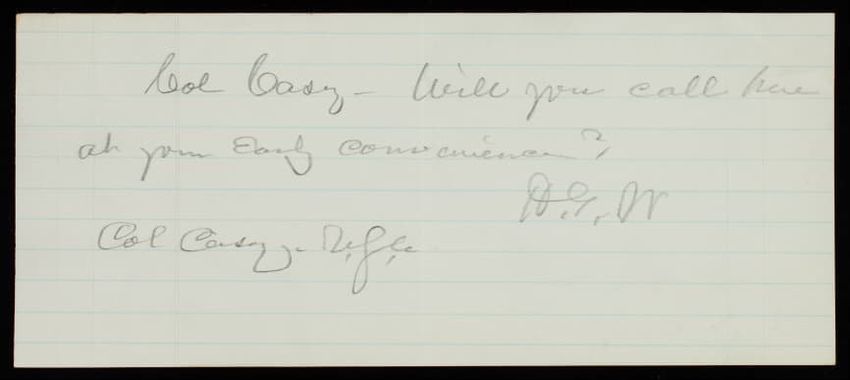 Col Casey – Will you call here
at your Early convenience?
H.G.W
Col Casey –